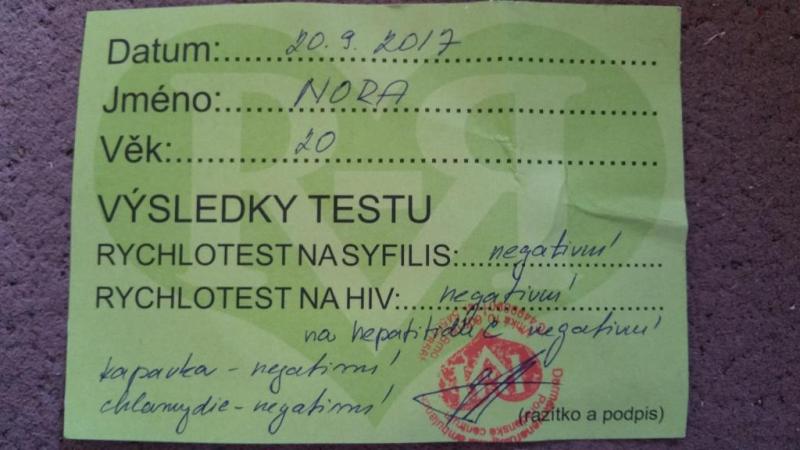 Datum: 20.9.2017
Jméno: NORA
Věk: 20
VÝSLEDKY TESTU
RYCHLOTEST NA SYFILIS: negativní
RYCHLOTEST NA HIV: negativní
na hepatitidu C negativní
kapavka - negativní
chlamydie - negativní
(razítko a podpis)